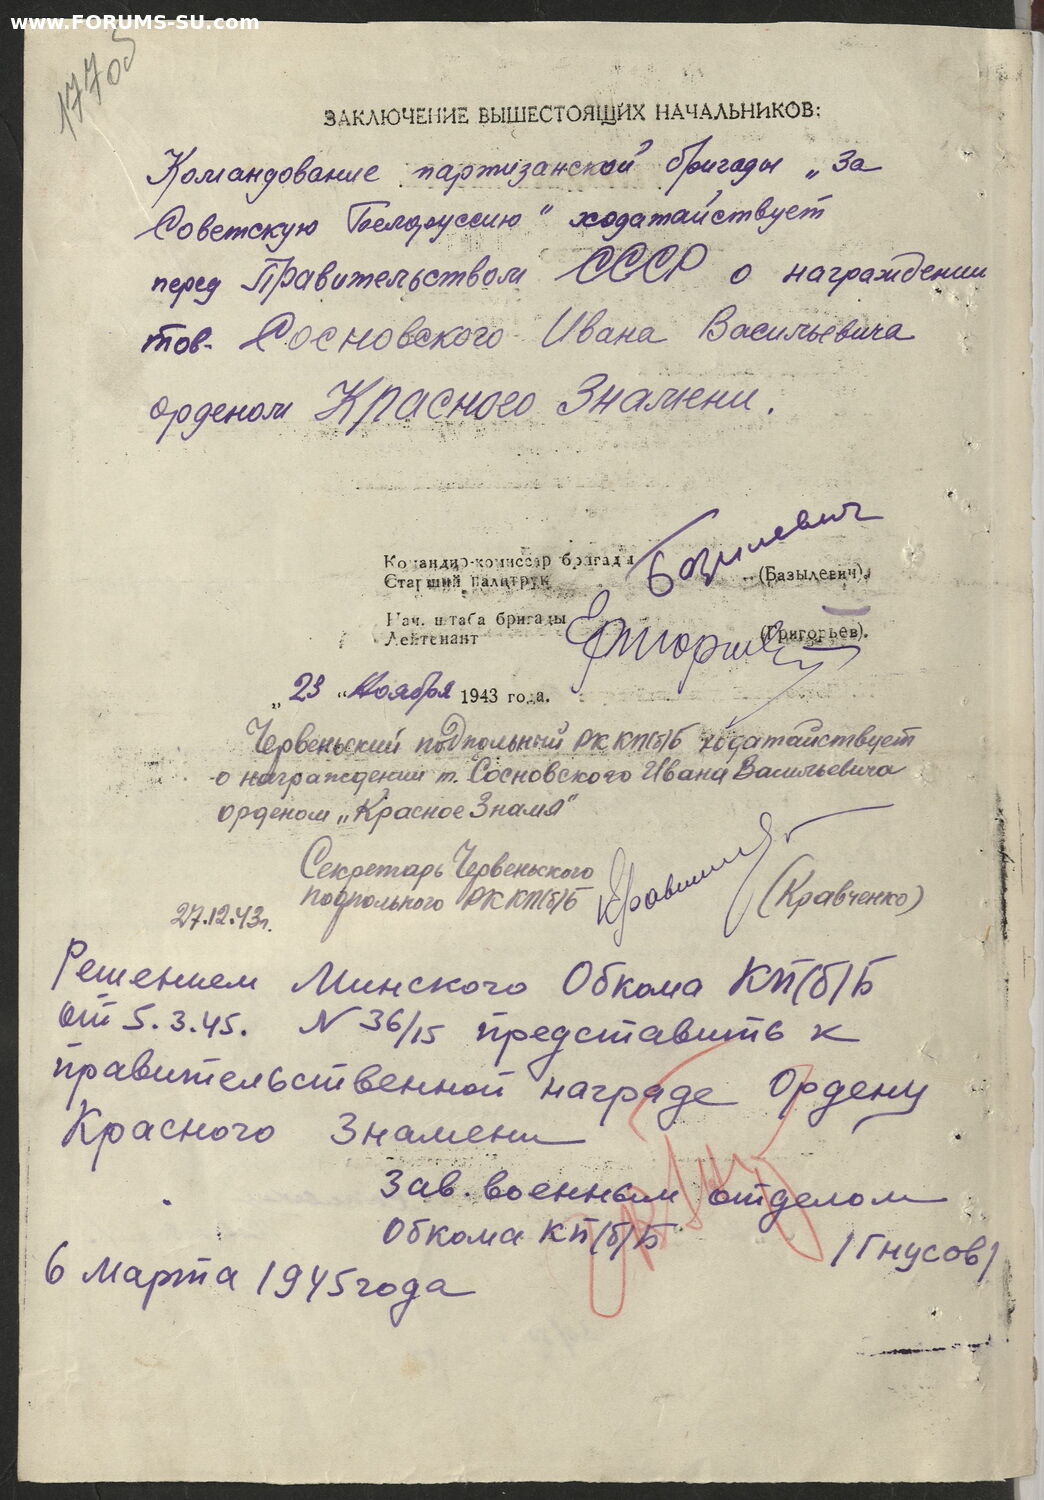 www.FORUMS-SU.com
1770
ЗАКЛЮЧЕНИЕ ВЫШЕСТОЯЩИХ НАЧАЛЬНИКОВ:
Командование партизанской бригады „За
Советскую Белоруссию" ходатайствует
перед Правительством СССР о награждении
тов. Сосновского Ивана Васильевича
орденом Красного Знамени.
Командир-комиссар бригады Базылевич
Старший палитрук (Базылевич).
Нач. штаба бригады
Лейтенант (Григорьев).
„23" Ноября 1943 года.
Червеньский подпольный РК КП(б)Б ходатайствует
о награждении т. Сосновского Ивана Васильевича
орденом „Красное Знамя"
Секретарь Червеньского
подпольного РК КП(б)Б (Кравченко)
27.12.43г.
Решением Минского Обкома КП(б)Б
от 5.3.45. N 36/15 представить к
правительственной награде Ордену
Красного Знамени
Зав. военным отделом
Обкома КП(б)Б /Гнусов/
6 марта 1945 года